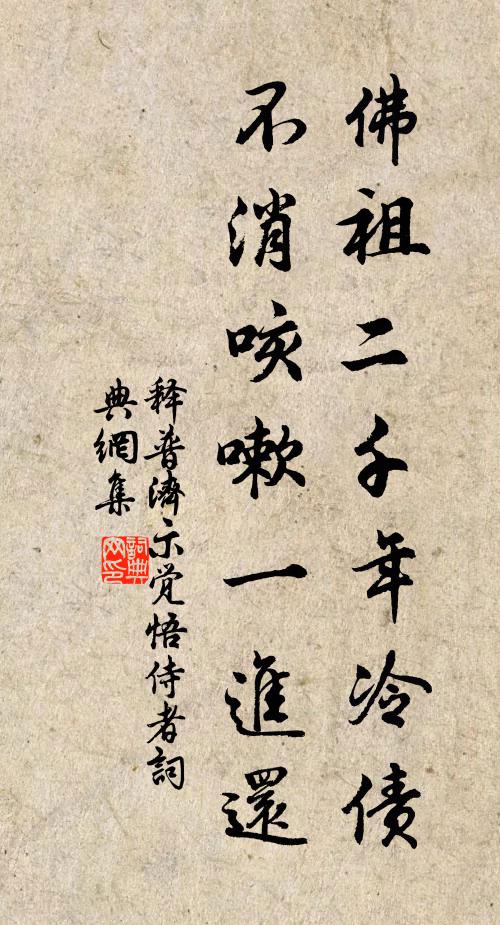 佛祖二千年冷债
不消咳嗽一進還
释普濟示觉悟侍者詞
典網集
詞典
网印